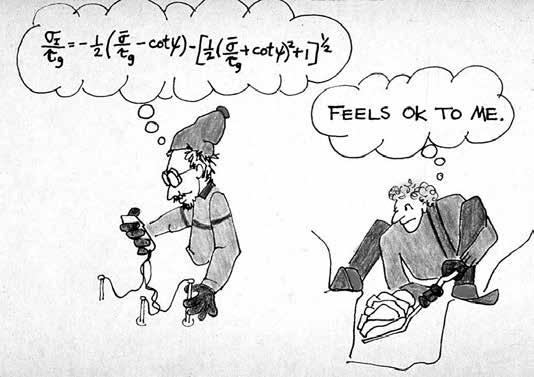 σz/τg = -1/2 (σ̄/τg - cot ψ) - [1/2 (σ̄/τg + cot ψ)² + 1]^1/2
FEELS OK TO ME.